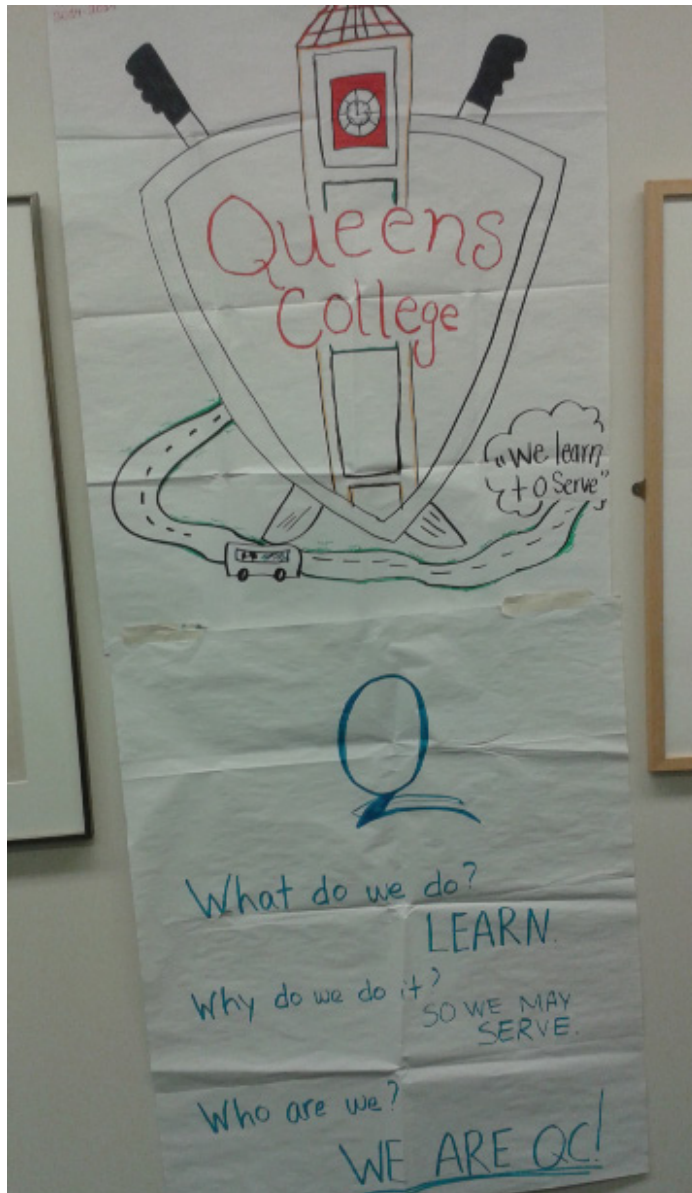 Queens
College
"We learn
to Serve"
Q
What do we do?
LEARN.
Why do we do it?
SO WE MAY
SERVE.
Who are we?
WE ARE QC!